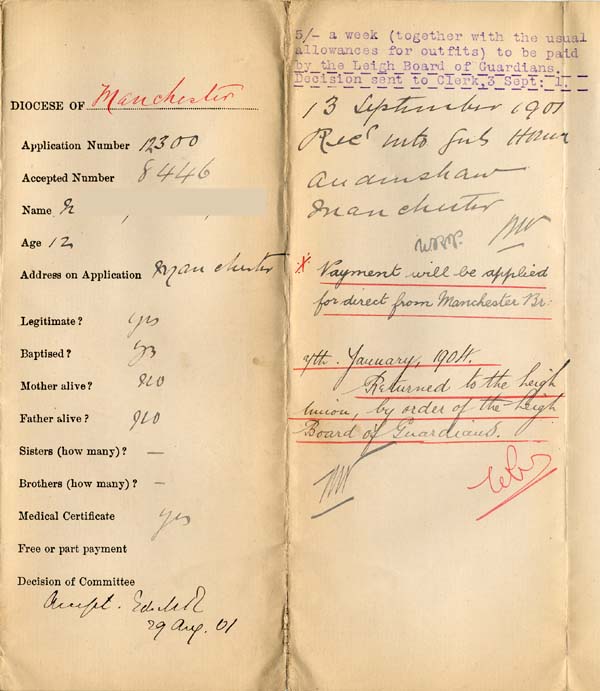 DIOCESE OF Manchester
Application Number 12300
Accepted Number 8446
Name
Age 12
Address on Application Manchester
Legitimate? yes
Baptised? yes
Mother alive? no
Father alive? no
Sisters (how many)? —
Brothers (how many)? —
Medical Certificate yes
Free or part payment
Decision of Committee
Accept. 
29 Aug. 01
5/- a week (together with the usual
allowances for outfits) to be paid
by the Leigh Board of Guardians.
Decision sent to Clerk, 3 Sept: 1.
13 September 1901
Recd into Girls Home
Audenshaw
Manchester
X Payment will be applied
for direct from Manchester Br:
7th. January, 1904.
Returned to the Leigh
Union, by order of the Leigh
Board of Guardians.